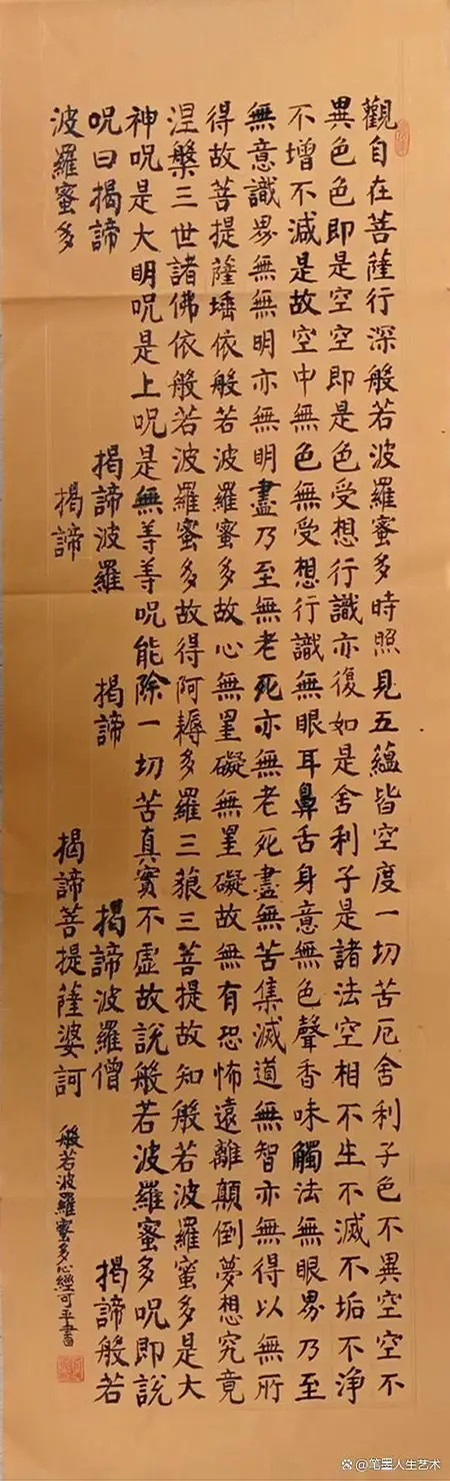 觀自在菩薩行深般若波羅蜜多時照見五蘊皆空度一切苦厄舍利子色不異空空不
異色色即是空空即是色受想行識亦復如是舍利子是諸法空相不生不滅不垢不淨
不增不減是故空中無色無受想行識無眼耳鼻舌身意無色聲香味觸法無眼界乃至
無意識界無無明亦無明盡乃至無老死亦無老死盡無苦集滅道無智亦無得以無所
得故菩提薩埵依般若波羅蜜多故心無罣礙無罣礙故無有恐怖遠離顛倒夢想究竟
涅槃三世諸佛依般若波羅蜜多故得阿耨多羅三藐三菩提故知般若波羅蜜多是大
神呪是大明呪是上呪是無等等呪能除一切苦真實不虛故說般若波羅蜜多呪即說
呪曰揭諦 揭諦波羅 揭諦 揭諦波羅僧 揭諦般若
波羅蜜多 揭諦 揭諦菩提薩婆訶
般若波羅蜜多心經可平書
笔墨人生艺术